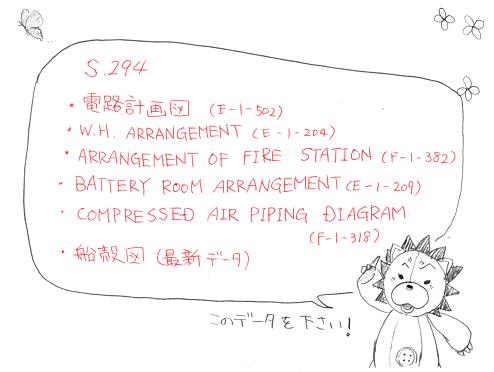 S.294
・電路計画図 (E-1-502)
・W.H. ARRANGEMENT (E-1-204)
・ARRANGEMENT OF FIRE STATION (F-1-382)
・BATTERY ROOM ARRANGEMENT (E-1-209)
・COMPRESSED AIR PIPING DIAGRAM
(F-1-318)
・船殻図 (最新データ)
このデータを下さい!